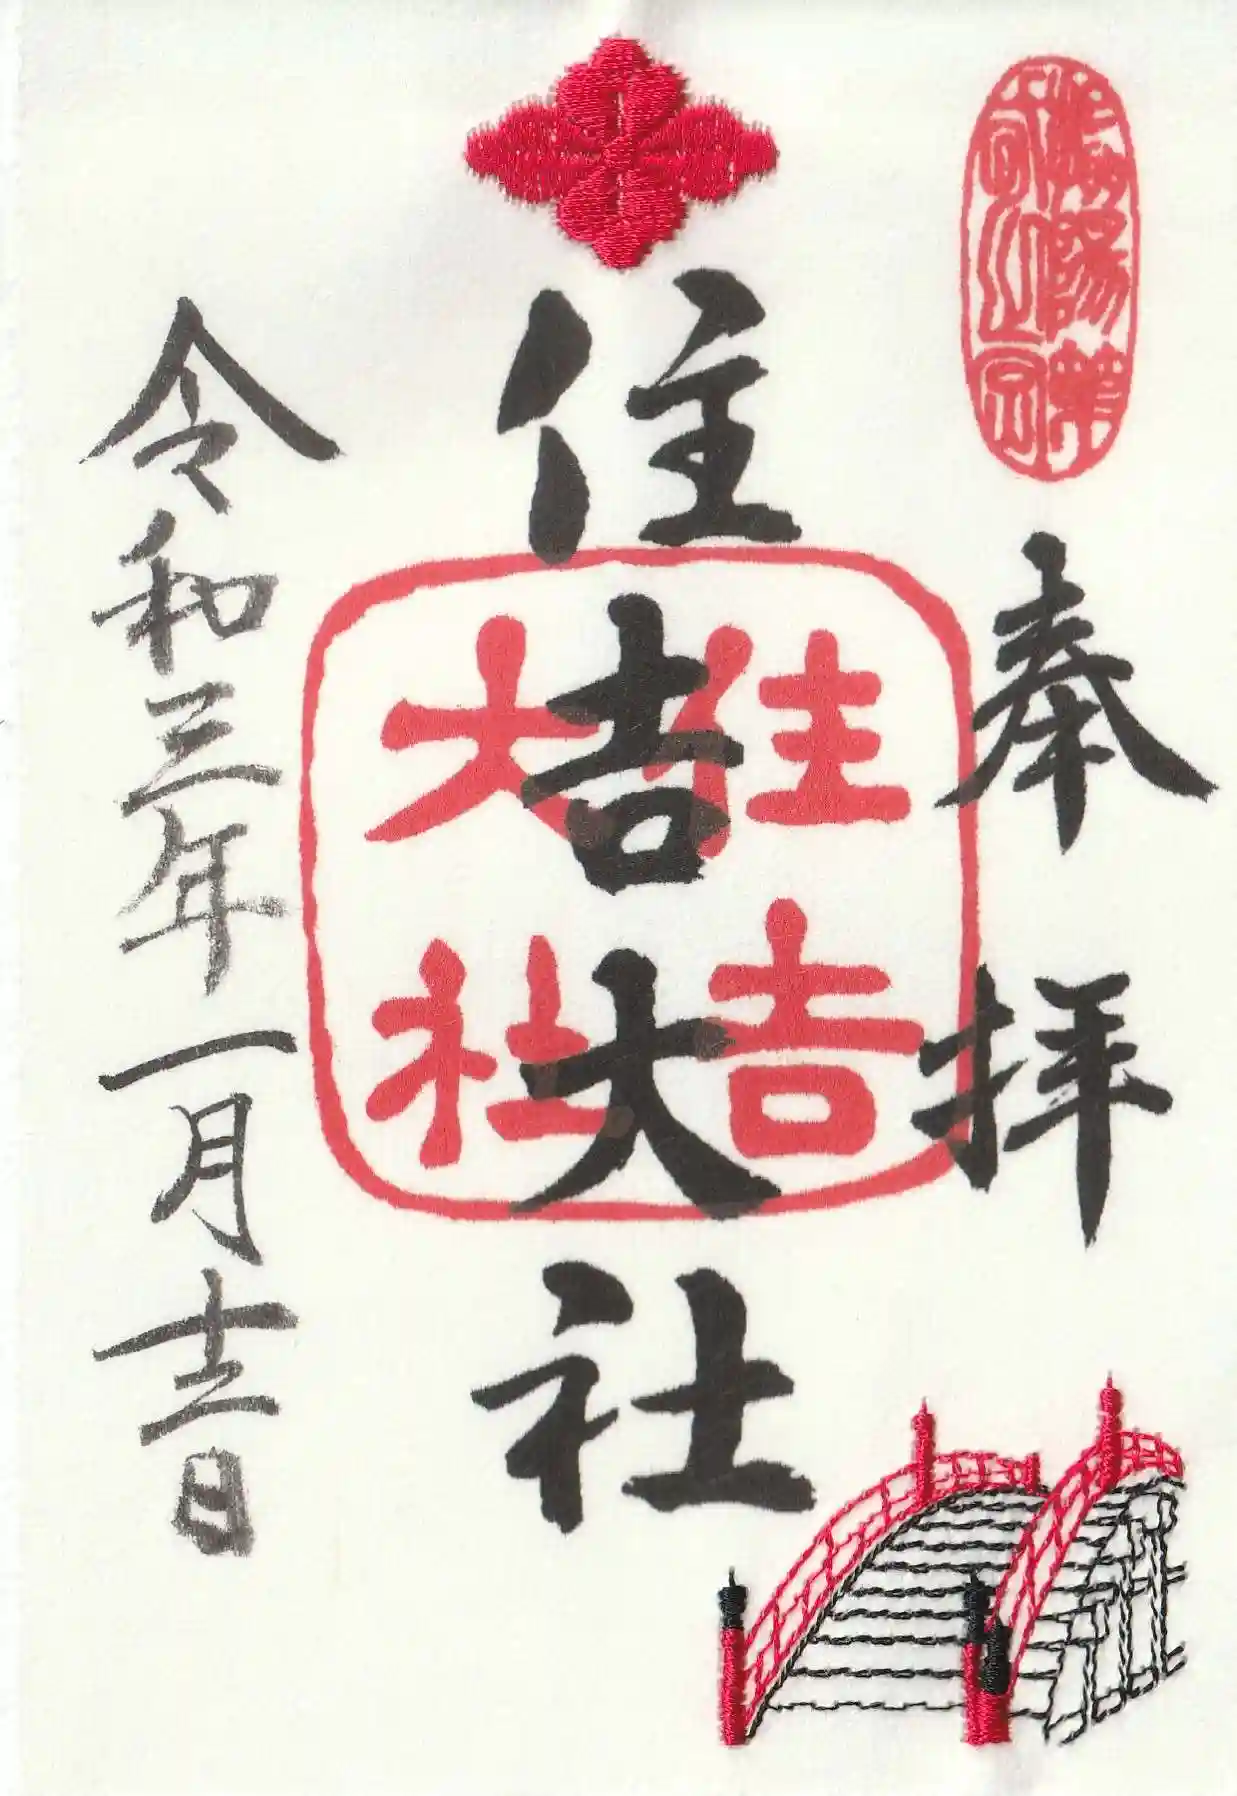 奉拝
住吉大社
住吉大社
令和三年一月十三日